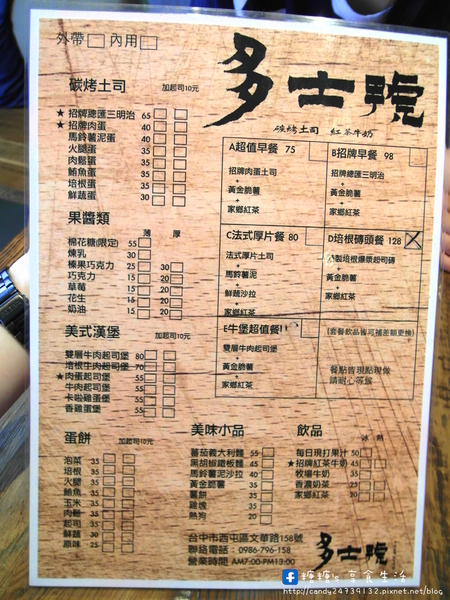 外帶□ 內用□
多士號
碳烤土司 紅茶牛奶
碳烤土司 加起司10元
★ 招牌總匯三明治 65
★ 招牌肉蛋 40
馬鈴薯泥蛋 40
火腿蛋 35
肉鬆蛋 35
鮪魚蛋 35
培根蛋 35
鮮蔬蛋 30
果醬類 薄 厚
棉花糖(限定) 55
煉乳 30
榛果巧克力 25 30
巧克力 15 20
草莓 15 20
花生 15 20
奶油 15 20
美式漢堡 加起司10元
雙層牛肉起司堡 80
培根牛肉起司堡 70
★肉蛋起司堡 55
牛肉起司堡 55
卡啦雞蛋堡 55
香雞蛋堡 55
蛋餅 加起司10元
泡菜 35
培根 35
火腿 35
鮪魚 35
玉米 35
肉鬆 35
起司 35
鮮蔬 30
原味 25
A超值早餐 75
招牌肉蛋土司
+
黃金脆薯
+
家鄉紅茶
B招牌早餐 98
招牌總匯三明治
+
黃金脆薯
+
家鄉紅茶
C法式厚片餐 80
法式厚片土司
+
馬鈴薯泥
+
鮮蔬沙拉
+
家鄉紅茶
D培根磚頭餐 128
製培根爆漿起司磚
+
黃金脆薯
+
家鄉紅茶
E牛堡超值餐
雙層牛肉起司堡
+
黃金脆薯
+
家鄉紅茶
(套餐飲品皆可補差額更換)
餐點皆現點現做
請耐心等候
美味小品
蕃茄義大利麵 45
黑胡椒鐵板麵 45
馬鈴薯泥沙拉 40
黃金脆薯 35
薯餅
雞塊 35
熱狗 20
飲品 冰 熱
每日現打果汁 50
★招牌紅茶牛奶 45
牧場牛奶 35
香濃奶茶 25
家鄉紅茶 20
台中市西屯區文華路158號
聯絡電話:0986-796-158
營業時間 AM7:00-PM13:00
多士號
糖糖's 享食生活
http://candy24739132.pixnet.net/blog